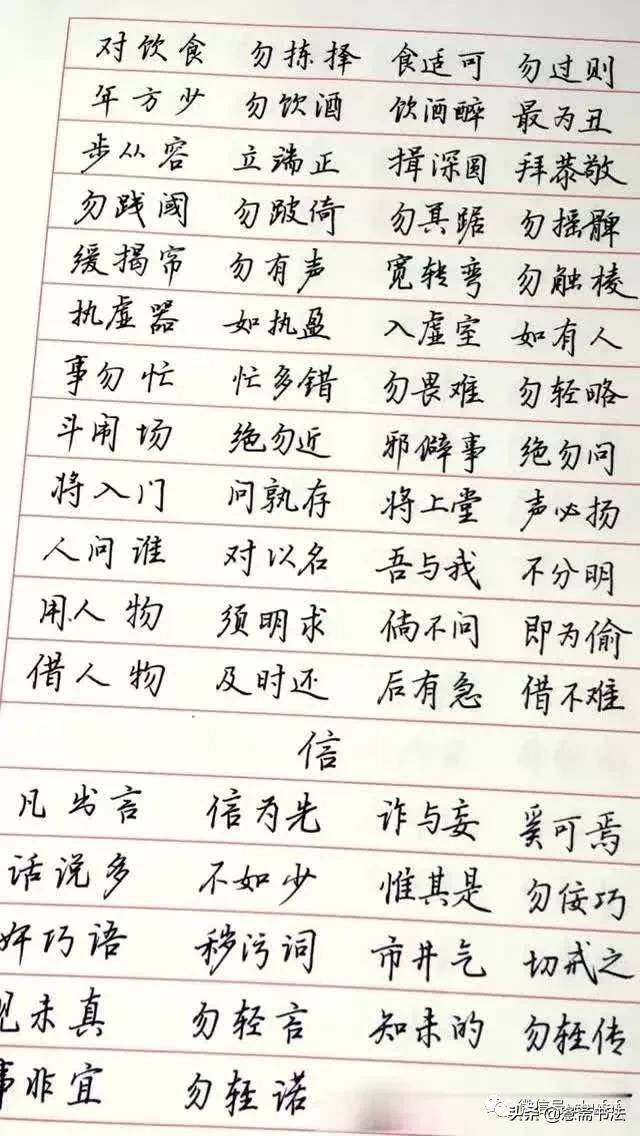 对饮食 勿拣择 食适可 勿过则
年方少 勿饮酒 饮酒醉 最为丑
步从容 立端正 揖深圆 拜恭敬
勿践阈 勿跛倚 勿箕踞 勿摇髀
缓揭帘 勿有声 宽转弯 勿触棱
执虚器 如执盈 入虚室 如有人
事勿忙 忙多错 勿畏难 勿轻略
斗闹场 绝勿近 邪僻事 绝勿问
将入门 问孰存 将上堂 声必扬
人问谁 对以名 吾与我 不分明
用人物 须明求 倘不问 即为偷
借人物 及时还 后有急 借不难
信
凡出言 信为先 诈与妄 奚可焉
话说多 不如少 惟其是 勿佞巧
奸巧语 秽污词 市井气 切戒之
见未真 勿轻言 知未的 勿轻传
事非宜 勿轻诺
微信号
头条@憲斋书法